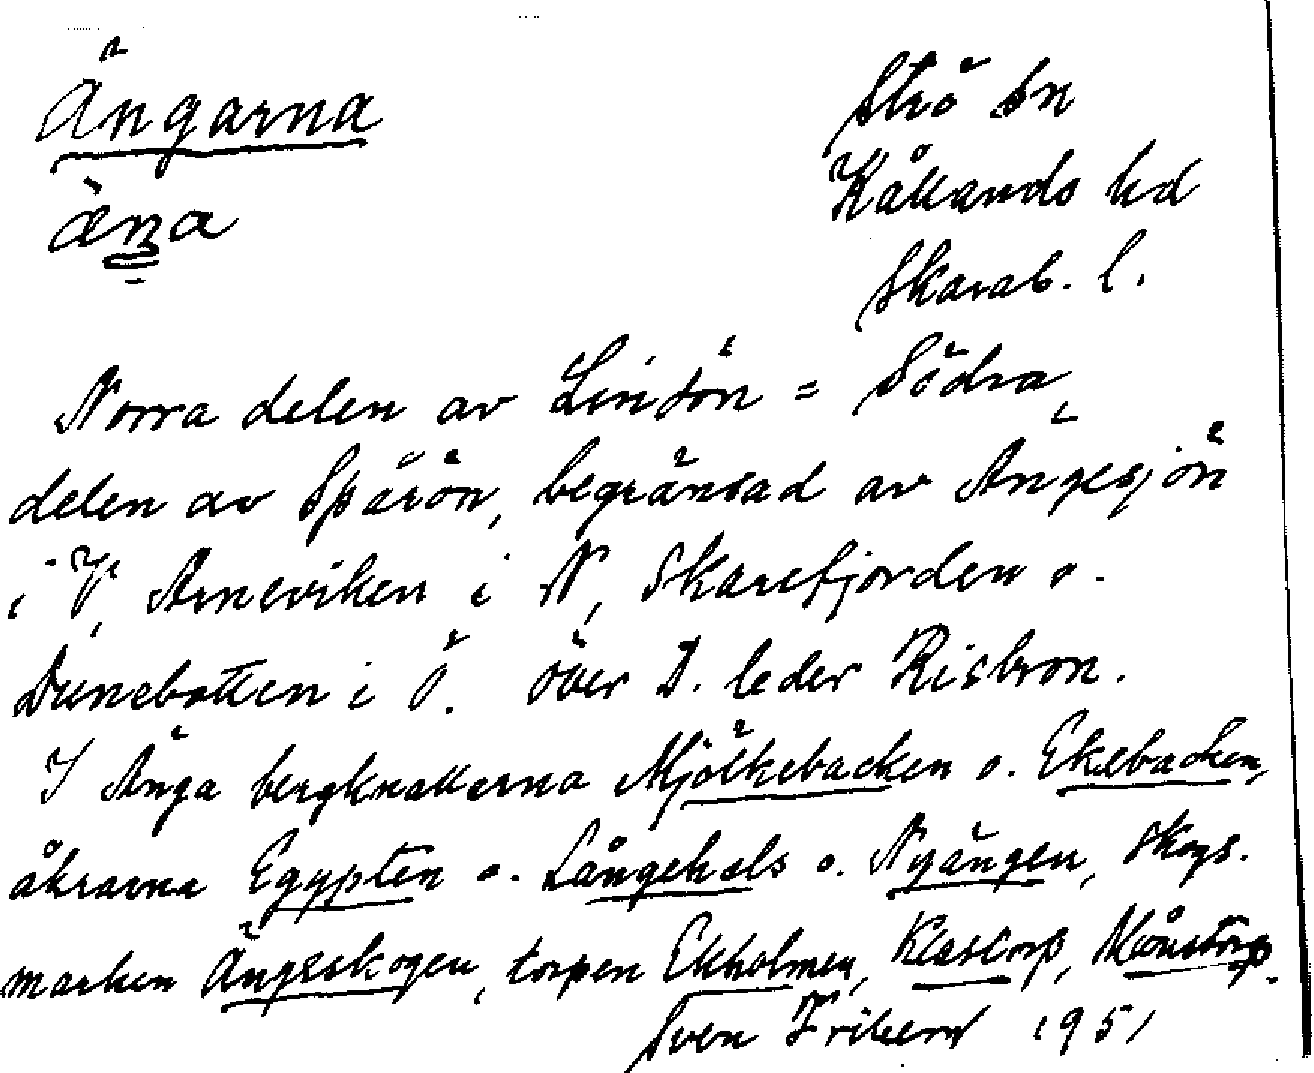 Ängarna
Strö sn
Kållands hd
Skarab. l.
Norra delen av Lindön = Södra
delen av Spårön, begränsad av Ängesjön
i V, Arneviken i N, Skarefjorden o.
Dunebotten i Ö. Över D. leder Risbron.
I Änga bergknallarna Mjölkebacken o. Ekebacken,
åkrarna Egypten o. Långehals o. Nyängen, skogs-
marken Ängsskogen, torpen Ekholmen, Klastorp, Månstorp.
Sven Friberg 1951